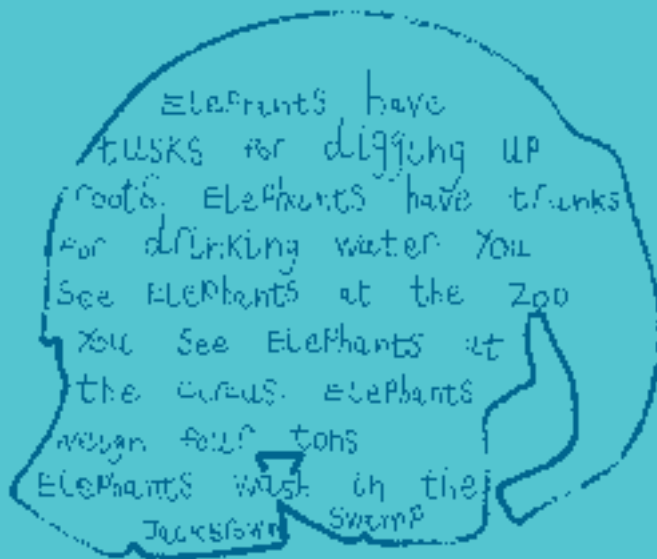 Elephants have
tusks for digging up
roots. Elephants have trunks
for drinking water You
See Elephants at the Zoo
You See Elephants at
the circus. Elephants
weigh four tons
Elephants wash in the
Swamp